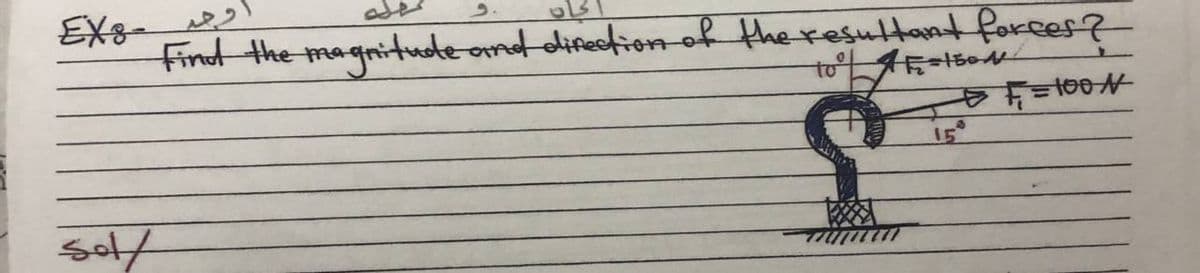 EX8- اوجد و اتجاه
Find the magnitude and direction of the resultant forces?
10° F₂=150N
F₁=100N
15°
Sol/